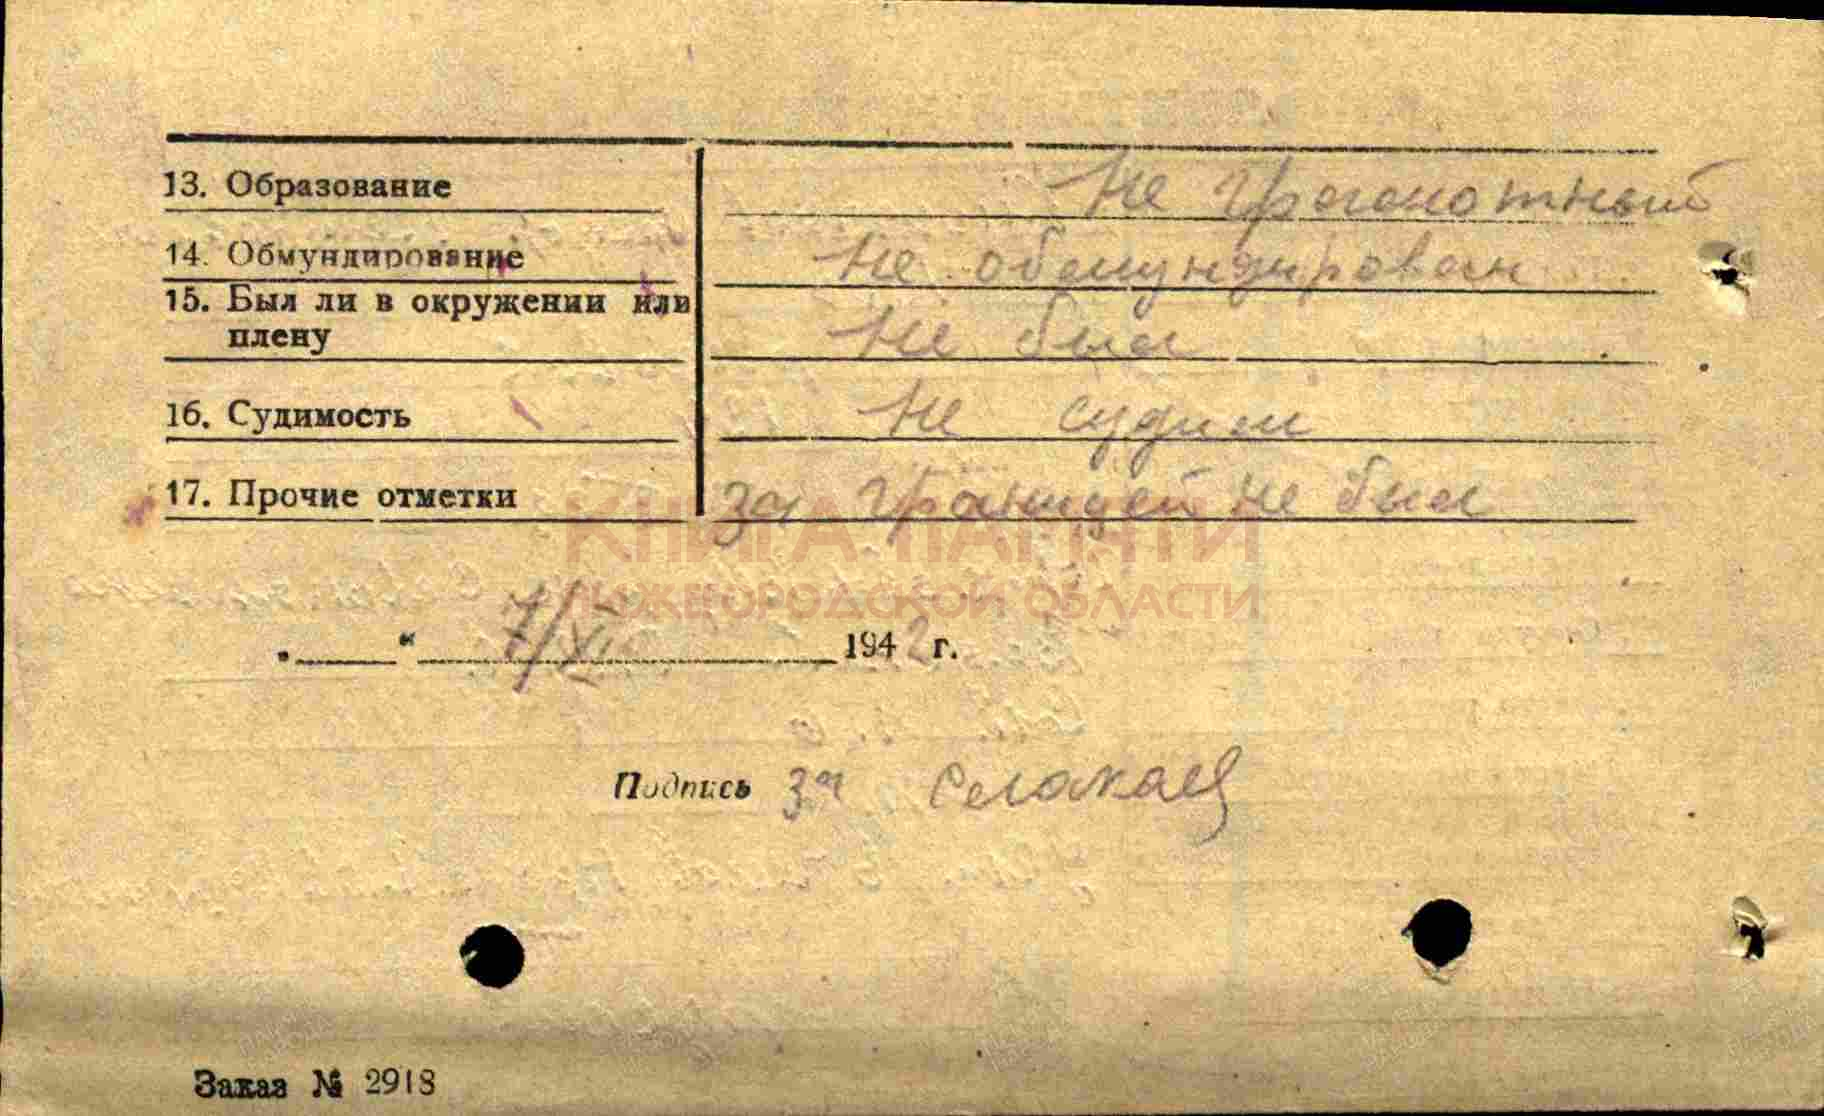 13. Образование не грамотный
14. Обмундирование не обмундирован
15. Был ли в окружении или
плену не был
16. Судимость не судим
17. Прочие отметки за границей не был
КНИГА ПАМЯТИ
НИЖЕГОРОДСКОЙ ОБЛАСТИ
„ “ 7/XI 1942 г.
Подпись за
Заказ № 2918